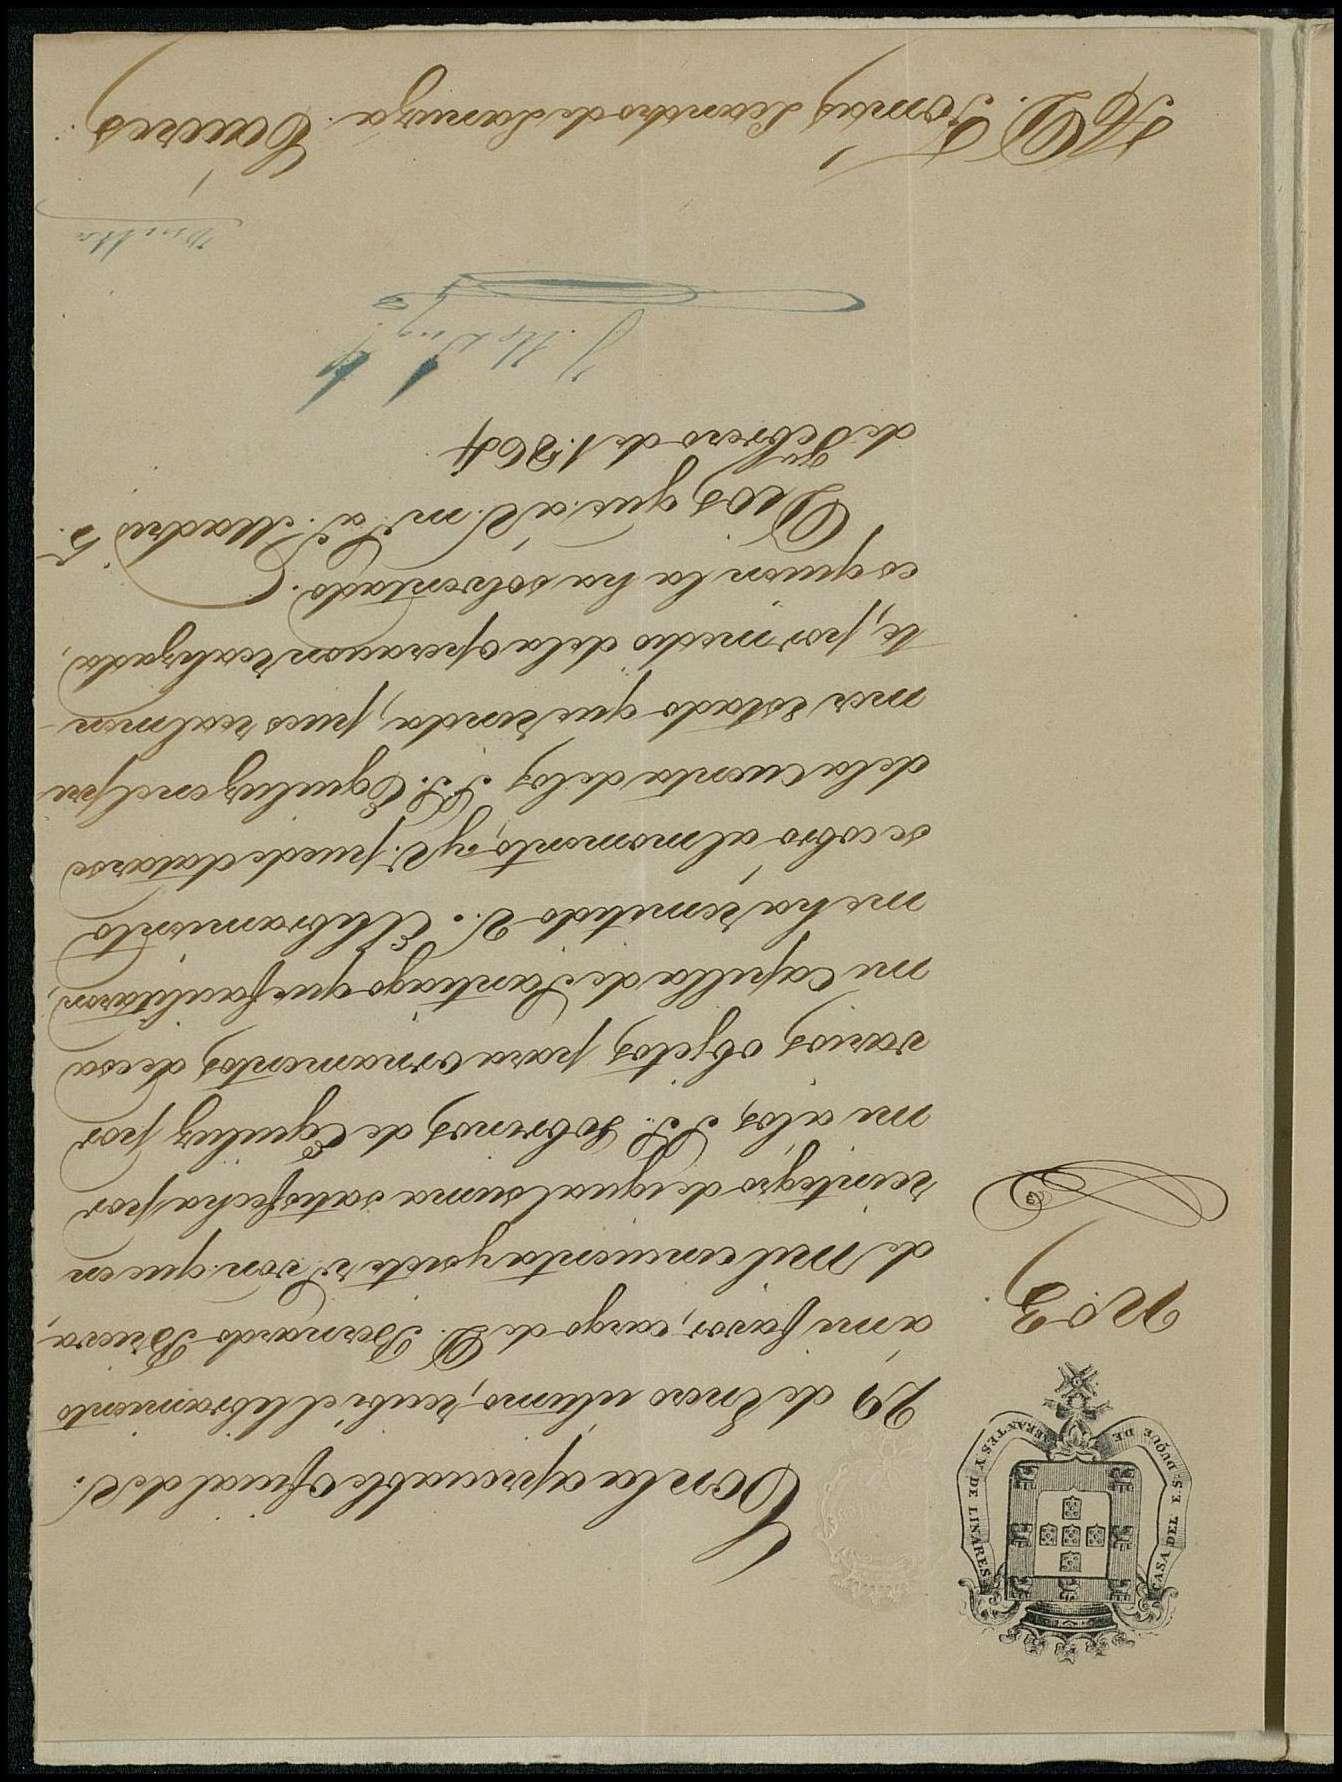 CASA DEL E.S. DUQUE DE ABRANTES Y DE LINARES
N.º 3
Con la apreciable oficial de V.
29 de Enero ultimo, recibí el libramiento
á mi favor, cargo de D. Bernardo
de Mil cincuenta y siete r.s von. que en
reintegro de igual suma satisfecha por
mi á los S.S. Sobrinos de Eguiluz por
varios objetos para ornamentos de esa
mi Capilla de Santiago que facilitaron,
me há remitido V. El libramiento
se cobró al momento, y V. puede datarse
de la cuenta de los S.S. Eguiluz en el pri
mer estado que rinda, pues realmen-
te, por medio de la operacion realizada,
es quien la ha solventado.
Dios gue. á V. m.s a.s Madrid 5.
de Febrero de 1.864
Vuelta
D. Tomás Leandro de Lariza. Caceres